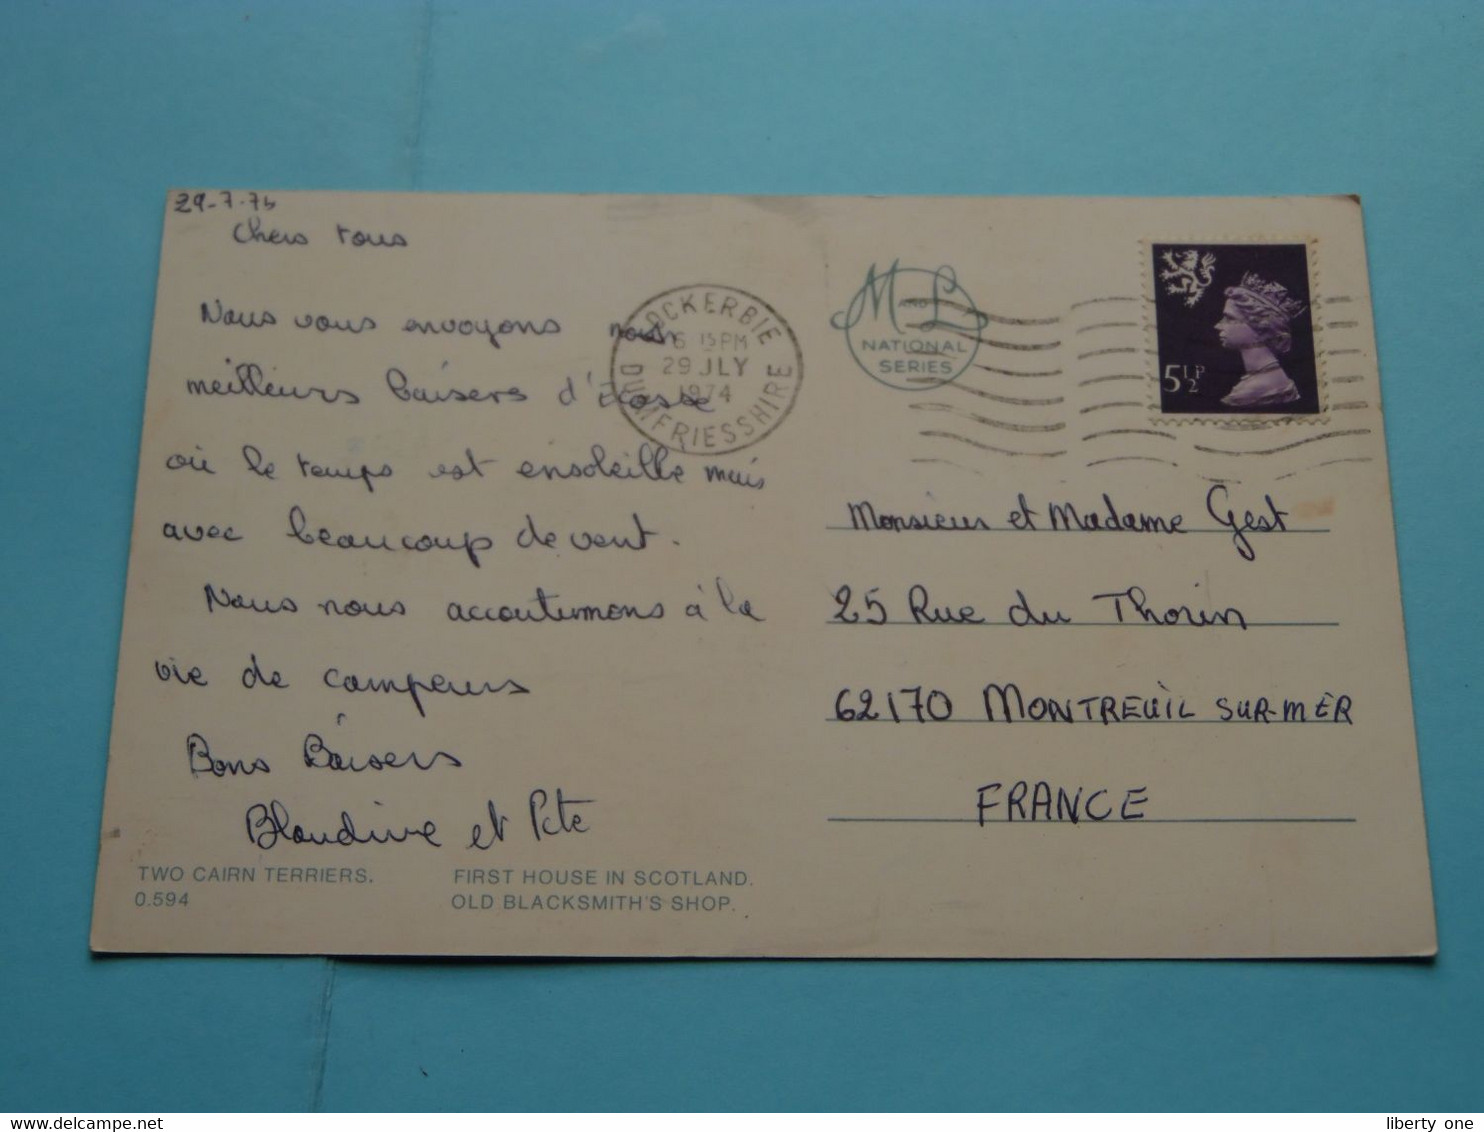 29-7-74
Chers tous
Nous vous envoyons nos
meilleurs baisers d'Écosse
où le temps est ensoleillé mais
avec beaucoup de vent.
Nous nous accoutumons à la
vie de campeurs
Bons Baisers
et Pete
TWO CAIRN TERRIERS.
0.594
FIRST HOUSE IN SCOTLAND.
OLD BLACKSMITH'S SHOP.
LOCKERBIE
6 15 PM
29 JLY
1974
DUMFRIESSHIRE
M AND L
NATIONAL
SERIES
5½P
Monsieur et Madame Gest
25 Rue du Thorin
62170 MONTREUIL SUR-MER
FRANCE
www.delcampe.net
liberty one